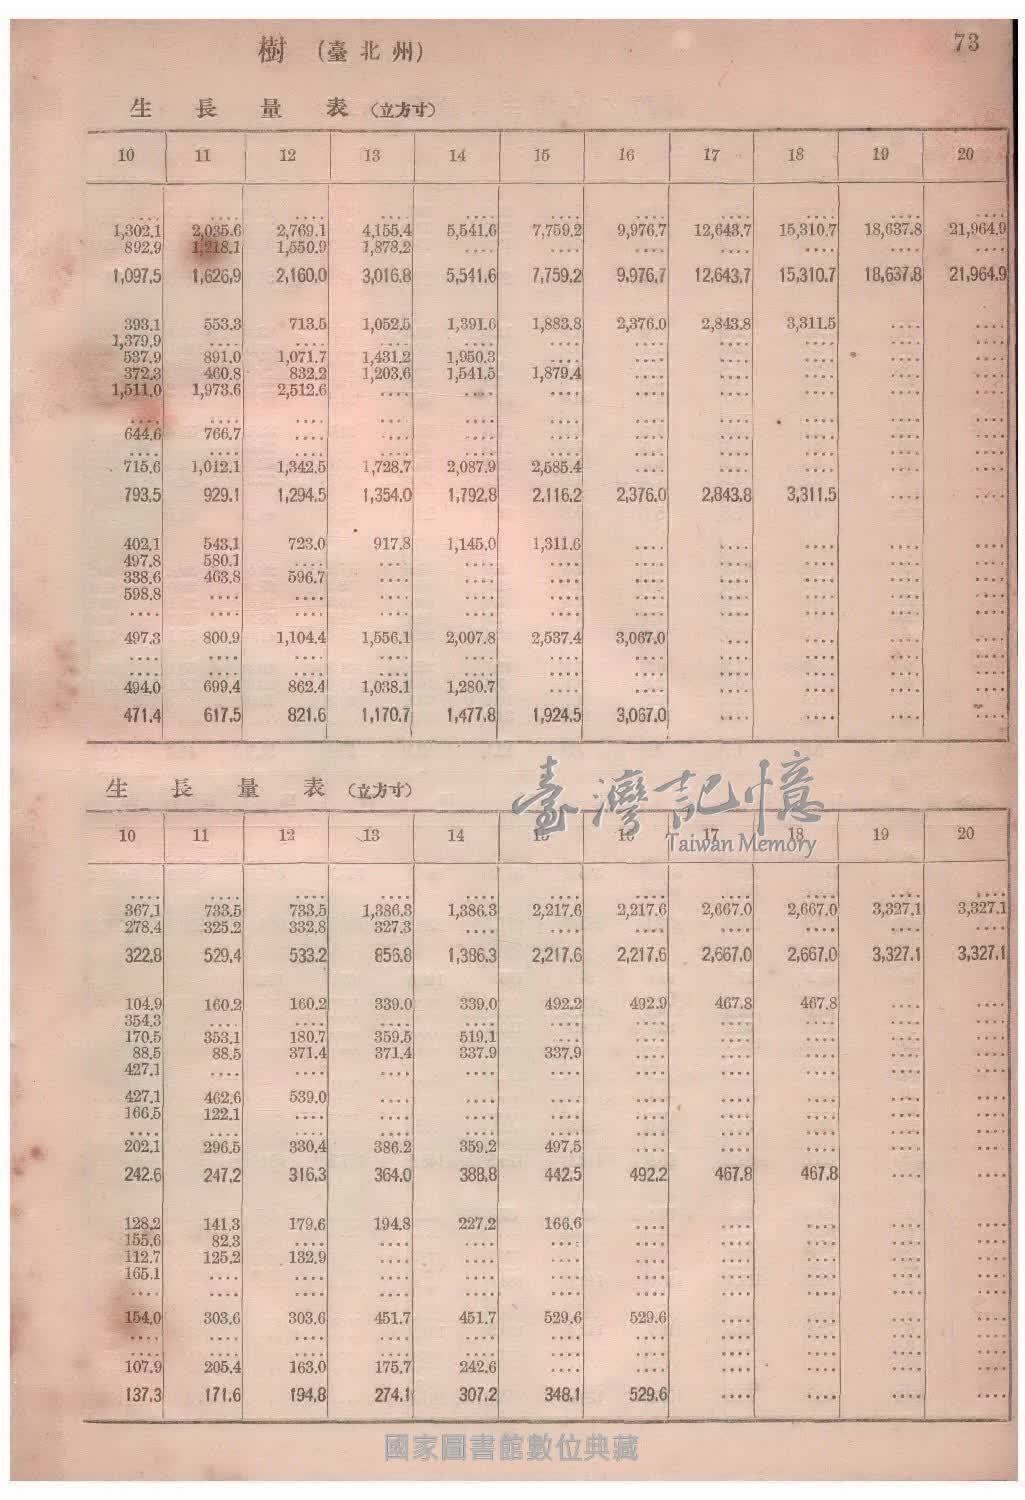 73
樹 (臺北州)
生長量表 (立方寸)
10 11 12 13 14 15 16 17 18 19 20
.... .... .... .... .... .... .... .... .... .... ....
1,302.1 2,035.6 2,769.1 4,155.4 5,541.6 7,759.2 9,976.7 12,643.7 15,310.7 18,637.8 21,964.9
892.9 1,218.1 1,550.9 1,878.2 .... .... .... .... .... .... ....
1,097.5 1,626.9 2,160.0 3,016.8 5,541.6 7,759.2 9,976.7 12,643.7 15,310.7 18,637.8 21,964.9
393.1 553.3 713.5 1,052.5 1,391.6 1,883.8 2,376.0 2,843.8 3,311.5 .... ....
1,379.9 .... .... .... .... .... .... .... .... .... ....
537.9 891.0 1,071.7 1,431.2 1,950.3 .... .... .... .... .... ....
372.3 460.8 832.2 1,203.6 1,541.5 1,879.4 .... .... .... .... ....
1,511.0 1,973.6 2,512.6 .... .... .... .... .... .... .... ....
.... .... .... .... .... .... .... .... .... .... ....
644.6 766.7 .... .... .... .... .... .... .... .... ....
.... .... .... .... .... .... .... .... .... .... ....
715.6 1,012.1 1,342.5 1,728.7 2,087.9 2,585.4 .... .... .... .... ....
793.5 929.1 1,294.5 1,354.0 1,792.8 2,116.2 2,376.0 2,843.8 3,311.5 .... ....
402.1 543.1 723.0 917.8 1,145.0 1,311.6 .... .... .... .... ....
497.8 580.1 .... .... .... .... .... .... .... .... ....
338.6 463.8 596.7 .... .... .... .... .... .... .... ....
598.8 .... .... .... .... .... .... .... .... .... ....
.... .... .... .... .... .... .... .... .... .... ....
497.3 800.9 1,104.4 1,556.1 2,007.8 2,537.4 3,067.0 .... .... .... ....
.... .... .... .... .... .... .... .... .... .... ....
.... .... .... .... .... .... .... .... .... .... ....
494.0 699.4 862.4 1,038.1 1,280.7 .... .... .... .... .... ....
471.4 617.5 821.6 1,170.7 1,477.8 1,924.5 3,067.0 .... .... .... ....
臺灣記憶
Taiwan Memory
生長量表 (立方寸)
10 11 12 13 14 15 16 17 18 19 20
.... .... .... .... .... .... .... .... .... .... ....
367.1 733.5 733.5 1,386.3 1,386.3 2,217.6 2,217.6 2,667.0 2,667.0 3,327.1 3,327.1
278.4 325.2 332.8 327.3 .... .... .... .... .... .... ....
322.8 529.4 533.2 856.8 1,386.3 2,217.6 2,217.6 2,667.0 2,667.0 3,327.1 3,327.1
104.9 160.2 160.2 339.0 339.0 492.2 492.9 467.8 467.8 .... ....
354.3 .... .... .... .... .... .... .... .... .... ....
170.5 353.1 180.7 359.5 519.1 .... .... .... .... .... ....
88.5 88.5 371.4 371.4 337.9 337.9 .... .... .... .... ....
427.1 .... .... .... .... .... .... .... .... .... ....
427.1 462.6 539.0 .... .... .... .... .... .... .... ....
166.5 122.1 .... .... .... .... .... .... .... .... ....
.... .... .... .... .... .... .... .... .... .... ....
202.1 296.5 330.4 386.2 359.2 497.5 .... .... .... .... ....
242.6 247.2 316.3 364.0 388.8 442.5 492.2 467.8 467.8 .... ....
128.2 141.3 179.6 194.8 227.2 166.6 .... .... .... .... ....
155.6 82.3 .... .... .... .... .... .... .... .... ....
112.7 125.2 132.9 .... .... .... .... .... .... .... ....
165.1 .... .... .... .... .... .... .... .... .... ....
.... .... .... .... .... .... .... .... .... .... ....
154.0 303.6 303.6 451.7 451.7 529.6 529.6 .... .... .... ....
.... .... .... .... .... .... .... .... .... .... ....
.... .... .... .... .... .... .... .... .... .... ....
107.9 205.4 163.0 175.7 242.6 .... .... .... .... .... ....
137.3 171.6 194.8 274.1 307.2 348.1 529.6 .... .... .... ....
國家圖書館數位典藏